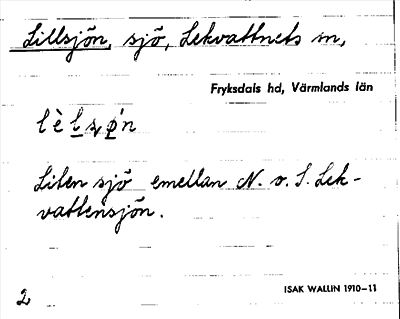 Lillsjön, sjö, Lekvattnets sn,
Fryksdals hd, Värmlands län
Liten sjö emellan N. o. S. Lek-
vattensjön.
2 ISAK WALLIN 1910–11